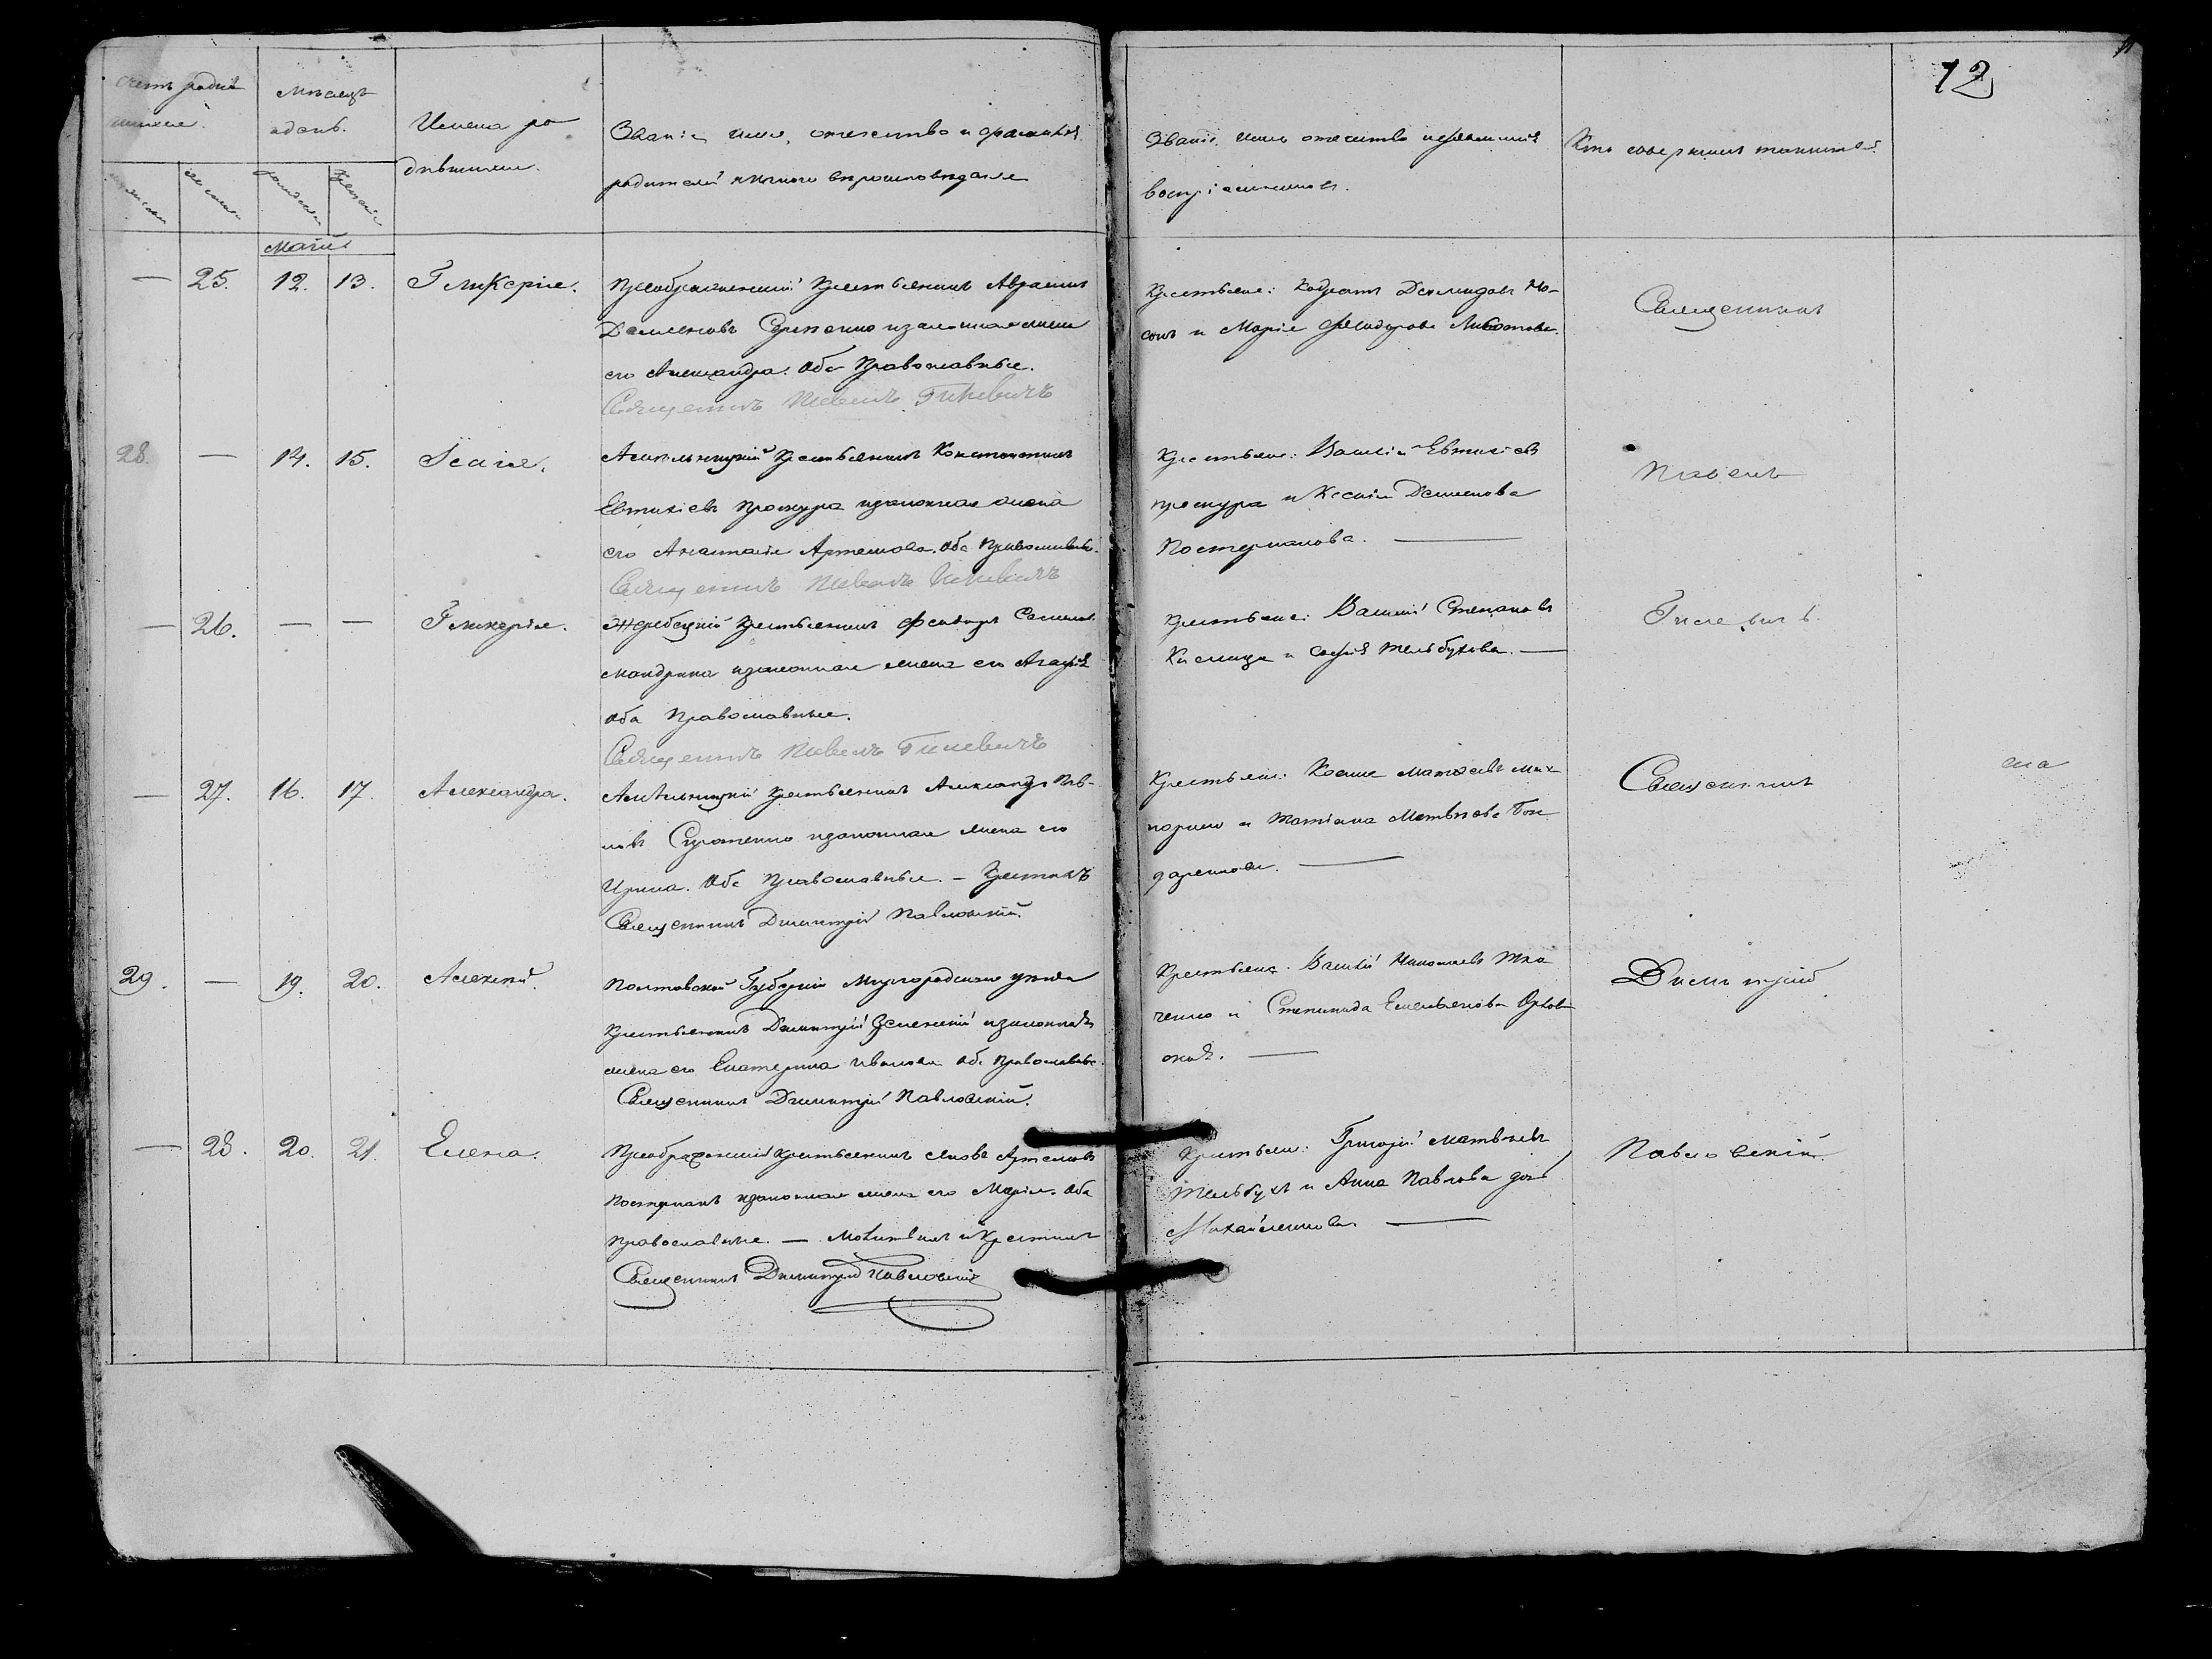 12
Счетъ родив
шихся.
Мѣсяцъ
и день.
Имена ро
дившихся.
Званіе, имя, отчество и фамилія
родителей и какого вѣроисповѣданія
Званіе, имя отчество и фамилія
воспріемниковъ.
Кто совершилъ таинство
рожденія
крещенія
Маій
— 25. 12. 13. Гликерія.
Преображенскій крестьянинъ Авраамъ
Даміановъ законная жена
его Александра. Оба Православные.
Священникъ Павелъ Гилевичъ
Крестьяне: Кодратъ Демидовъ Мо-
и Марія Феодорова
Священникъ
28. — 14. 15. Ісаія.
крестьянинъ Константинъ
Евтихіевъ Проскура и законная жена
его Анастасія Артемова. Оба Православные.
Священникъ Павелъ Гилевичъ
Крестьяне: Василій Евтихіевъ
Проскура и Ксенія Даміанова
Постернакова. —
Павелъ
— 26. — — Гликерія.
Жеребецкій крестьянинъ Феодоръ Самуиловъ
Мандрика и законная жена его Агафія
Оба Православные.
Священникъ Павелъ Гилевичъ
Крестьяне: Василій Степановъ
Кислица и Софія Тельбухова. —
Гилевичъ.
— 27. 16. 17. Александра.
крестьянинъ Александръ Пав-
ловъ и законная жена его
Ирина. Оба Православные. — Крестилъ
Священникъ Димитрій Павловскій.
Крестьяне: Косма Матѳеевъ
и Татіана Матвѣева Бон
даренкова. —
Священникъ
29. — 19. 20. Алексѣй.
Полтавской Губерніи Миргородскаго уѣзда
крестьянинъ Димитрій Зеленскій и законная
жена его Екатерина Иванова Оба Православные.
Священникъ Димитрій Павловскій.
Крестьяне: Василій Николаевъ Тка
ченко и Степанида Емельянова Орлов
ская. —
Димитрій
— 28. 20. 21. Елена.
Преображенскій крестьянинъ Яковъ Артемовъ
Постернакъ и законная жена его Марія. Оба
Православные. — Молитвилъ и Крестилъ
Священникъ Димитрій Павловскій
Крестьяне: Григорій Матвѣевъ
Тельбухъ и Анна Павлова дочь
Михайленкова —
Павловскій